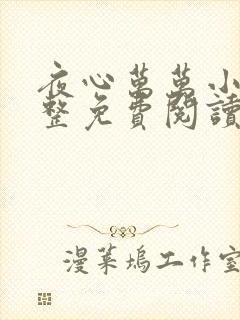 夜心萬萬小
整免費閱讀
漫菓塢工作室